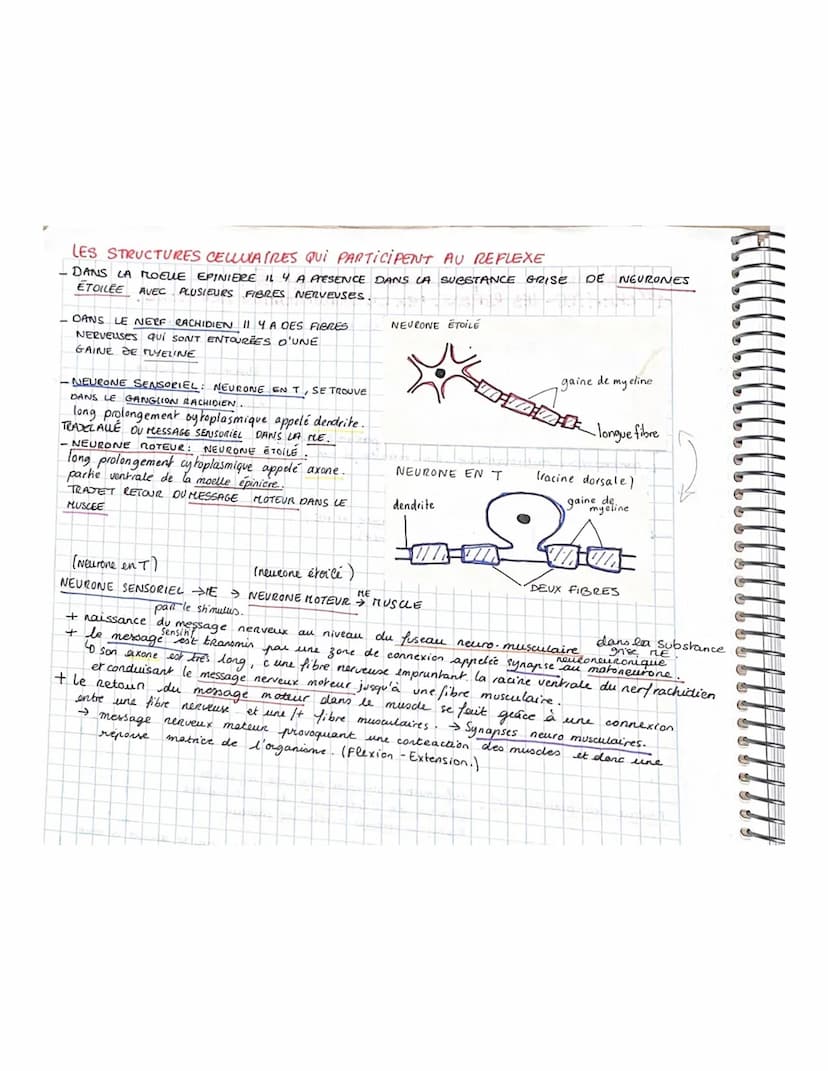 LES STRUCTURES CELLULAIRES QUI PARTICIPENT AU REFLEXE
- DANS LA MOELLE EPINIERE IL Y A PRESENCE DANS LA SUBSTANCE GRISE DE NEURONES
ÉTOILÉE AVEC PLUSIEURS FIBRES NERVEUSES.
- DANS LE NERF RACHIDIEN Il Y A DES FIBRES
NERVEUSES QUI SONT ENTOURÉES D'UNE
GAINE DE MYELINE
- NEURONE SENSORIEL: NEURONE EN T, SE TROUVE
DANS LE GANGLION RACHIDIEN.
long prolongement cytoplasmique appelé dendrite.
DU MESSAGE SENSORIEL DANS LA ME.
- NEURONE MOTEUR: NEURONE ÉTOILÉ.
long prolongement cytoplasmique appelé axone.
partie ventrale de la moelle épiniere.
TRAJET RETOUR DU MESSAGE MOTEUR DANS LE
MUSCLE
NEURONE ÉTOILÉ
gaine de myeline
longue fibre
NEURONE EN T (racine dorsale)
dendrite
gaine de
myeline
DEUX FIBRES
(Neurone en T) (neurone étoilé)
NEURONE SENSORIEL → ME → NEURONE MOTEUR → ME MUSCLE
par le stimulus.
+ naissance du message nerveux au niveau du fuseau neuro-musculaire dans la substance
grise ME.
+ le message sensitif est transmis par une zone de connexion appelée synapse neuroneuronique au motoneurone.
↳ son axone est très long, c une fibre nerveuse empruntant la racine ventrale du nerf rachidien
et conduisant le message nerveux moteur jusqu'à une fibre musculaire.
+ Le retour du message moteur dans le muscle se fait grâce à une connexion
entre une fibre nerveuse et une/+ fibre musculaires. → Synapses neuro musculaires.
→ message nerveux moteur provoquant une contraction des muscles et donc une
réponse motrice de l'organisme. (Flexion - Extension.)